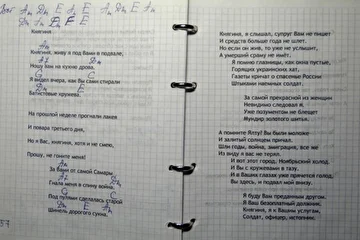 Am Dm E Am E Am Dm E Am
Am Dm Am E E
Княгиня
Am
Княгиня, живу я под вами в подвале,
A7 Dm
Ношу вам на кухню дрова.
G C
Я видел вчера, как Вы сами стирали
Dm E
Батистовые кружева.
На прошлой неделе прогнали лакея
И повара третьего дня.
Но я Вас, княгиня, хотя и не смею,
Прошу, не гоните меня!
Am
За вами от самой Самары
A7 Dm
Гнала меня в спину война.
G C
Под пулями сделалась старой
Dm E Am
Шинель дорогого сукна.
37
Княгиня, я слышал, супруг Вам не пишет
И средств больше года не шлет.
Но если он жив, то уже не услышит,
А умерший сраму не имёт.
Я помню глазницы, как окна пустые,
Горящих украинских хат,
Газеты кричат о спасенье России
Штыками наемных солдат.
За самой прекрасной из женщин
Невидимо следовал я,
Уже позументом не блещет
Мундир золотого шитья.
А помните Ялту? Вы были моложе
И залитый солнцем причал.
Шли годы, война, эмиграция, все же
Из виду я вас не терял.
И вот этот город. Ноябрьский холод.
И Вы с кружевами в тазу.
И в Ваших глазах уже прячется голод,
Вы здесь, и подвал мой внизу.
Я буду Вам преданным другом,
Я Ваш безоплатный должник.
Княгиня, я к Вашим услугам,
Солдат, офицер, истопник.